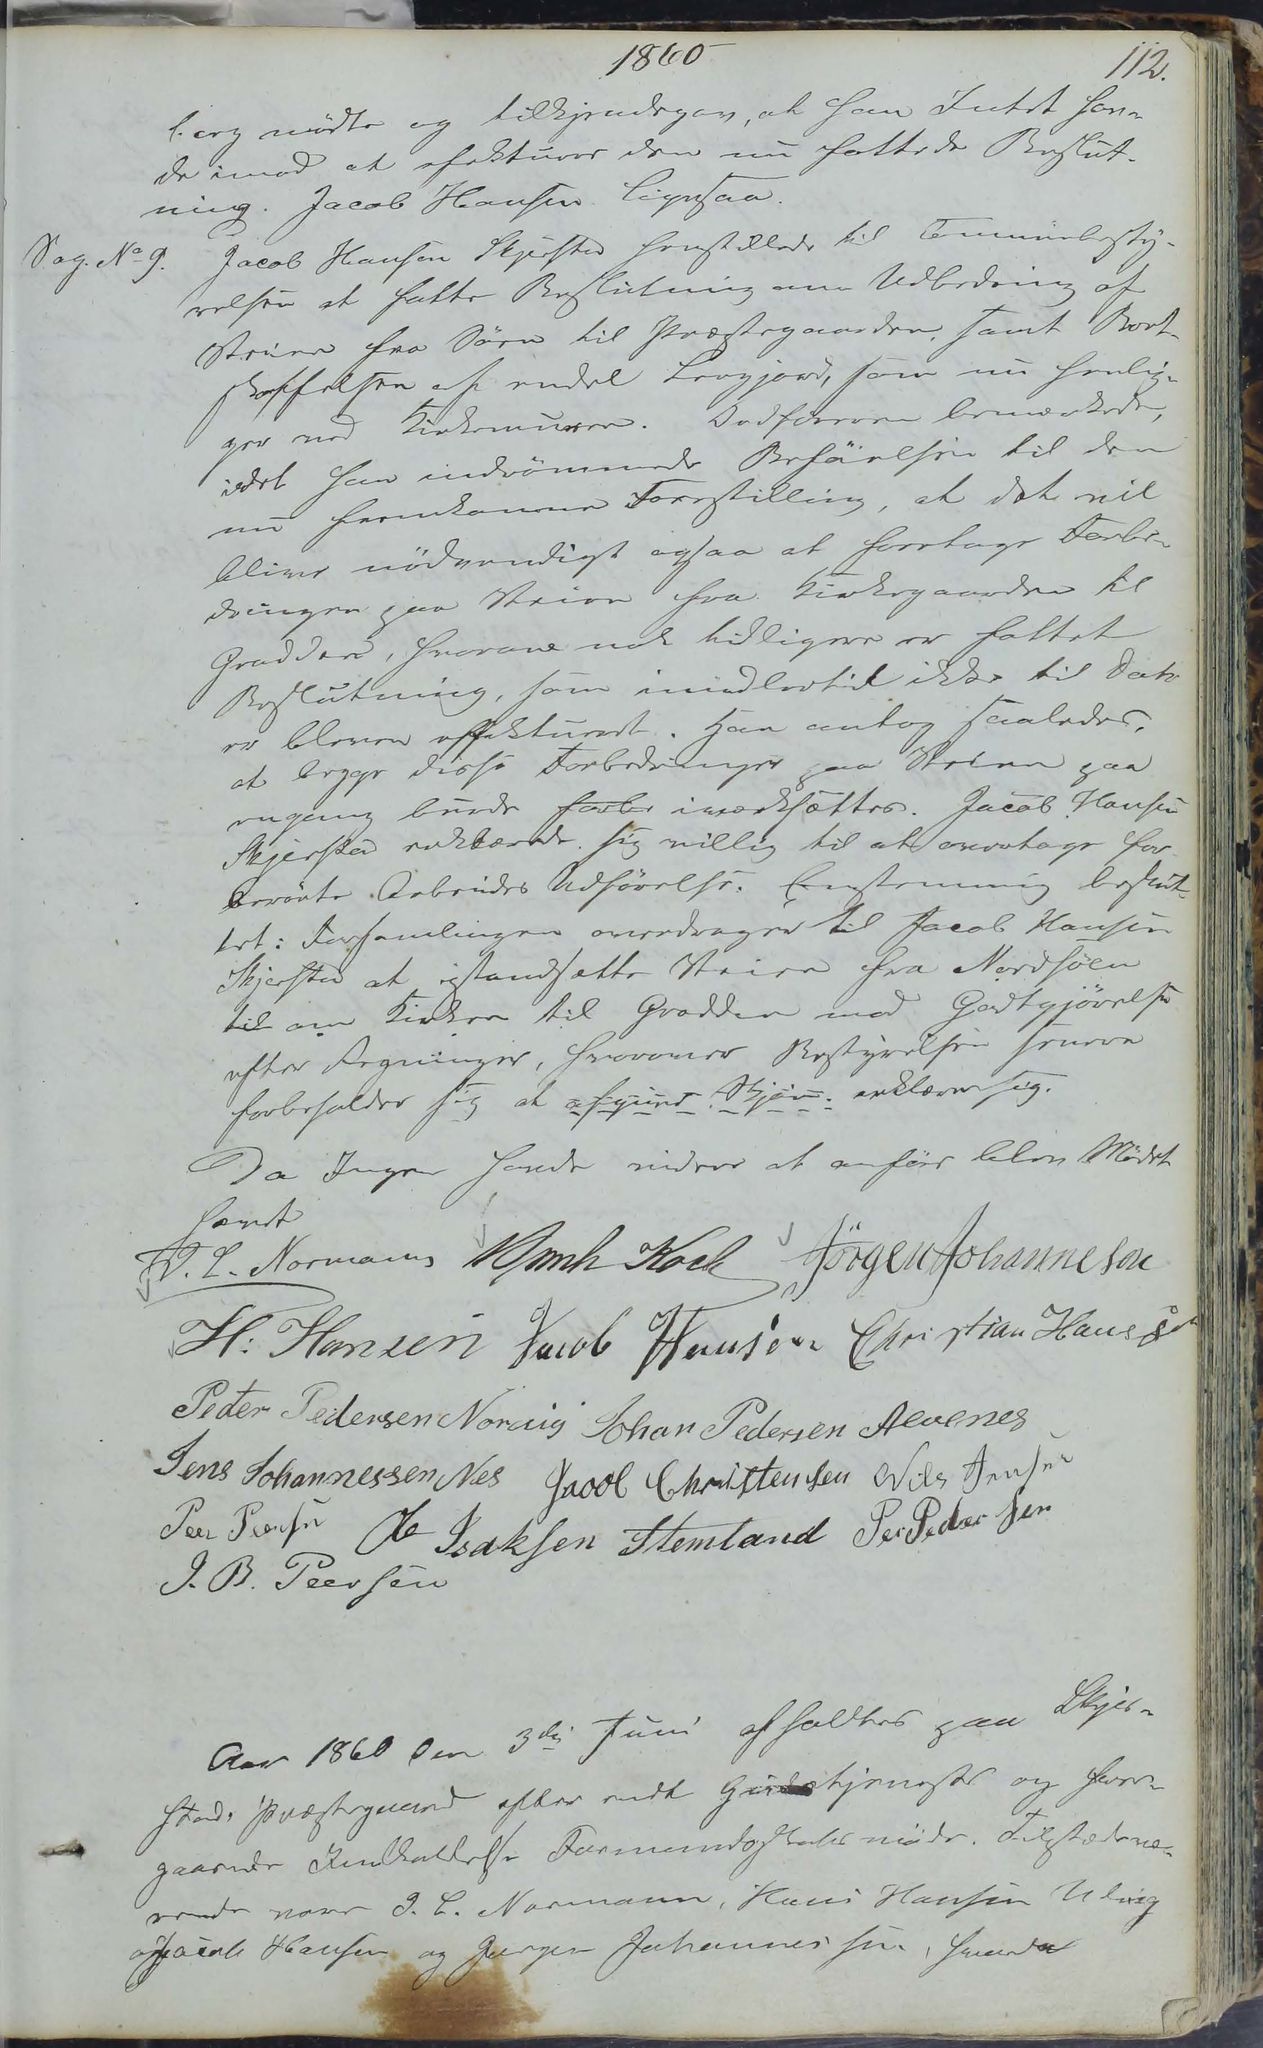 1860
112.
berg mödte og tilkjendegav, at han Intet hav-
de imod at efektuere den nu fattede Beslut-
ning. Jacob Hansen ligesaa.
Sag. No 9. Jacob Hansen Skjerstad henstillede til Commünebesty-
relsen at fatte Beslutning om Udbedring af
Veien fra Söen til Præstegaarden, samt Bort-
skaffelsen af endel Leergjord, som nu henlig-
ger ved Kirkemuren. Ordföreren bemærkede,
idet han indrömmede Beföielsen til den
nu fremkomne Forestilling, at det vil
blive nödvendigt ogsaa at foretage Forbe-
dringer paa Veien fra Kirkegaarden til
Gradden, hvorom nok tidligere er fattet
Beslutning, som imidlertid ikke til Dato
er bleven effektueret. Han antog saaledes,
at begge disse Forbedringer paa Veien paa
engang burde iværksættes. Jacob Hansen
Skjerstad erklærede sig villig til at overtage for-
berörte Arbeides Udförelse. Eenstemmig beslut-
tet: Forsamlingen overdrager til Jacob Hansen
Skjerstad at istandsætte Veien fra Nordsöen
til om Kirken til Gradden mod Godtgjörelse
efter Regninger, hvorover Bestyrelsen senere
forbeholder sig at afgive Skjön. erklære sig.
Da Ingen havde videre at anföre blev Mödet
hævet
J. L. Normann Koch Jörgen Johannesen
H: Hansen Jacob Hansen Christian Hansen
Peder Pedersen Norvig Johan Pedersen Alvenes
Jens Johannessen Nes Jacob Christensen Nils Jensen
Peer Peersen Isaksen Stemland Per Pedersen
J. B. Peersen
Aar 1860 den 3die Juni afholdtes paa Skjer-
stad Præstegaard efter endt Gudstjeneste og fore-
gaaende Indkaldelse Formandsskabsmöde. Tilstedevæ-
rende vare J. L. Normann, Hans Hansen Ulvig
Jacob Hansen og Jörgen Johannessen, hvorda